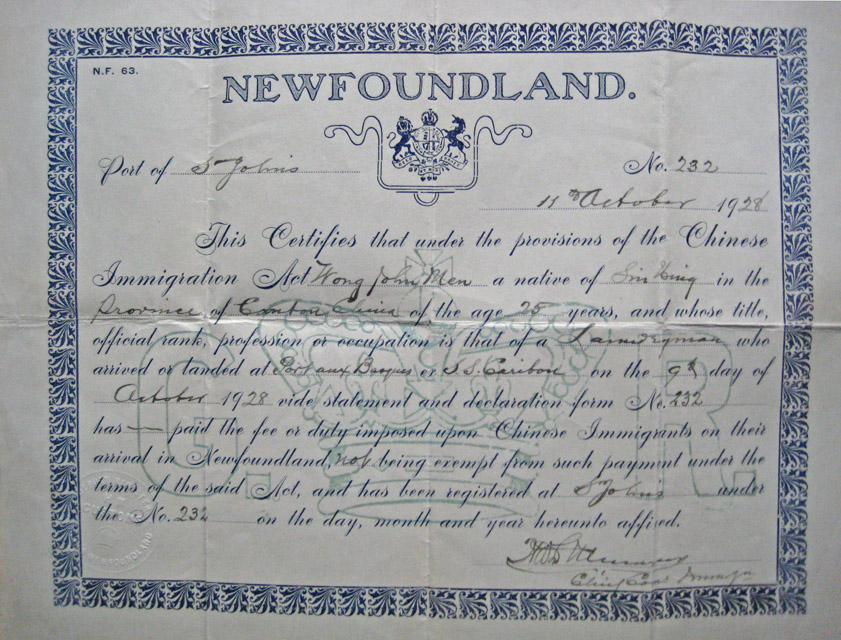 N.F. 63.
NEWFOUNDLAND.
Port of St Johns No. 232
11th October 1928
This Certifies that under the provisions of the Chinese
Immigration Act Wong John Men a native of Sin Hing in the
Province of Canton China of the age 25 years, and whose title,
official rank, profession or occupation is that of a Laundryman who
arrived or landed at Port aux Basques or S.S. Caribou on the 9th day of
October 1928 vide statement and declaration form No. 232
has — paid the fee or duty imposed upon Chinese Immigrants on their
arrival in Newfoundland, not being exempt from such payment under the
terms of the said Act, and has been registered at St Johns under
the No. 232 on the day, month and year hereunto affixed.
G. R.
NEWFOUNDLAND